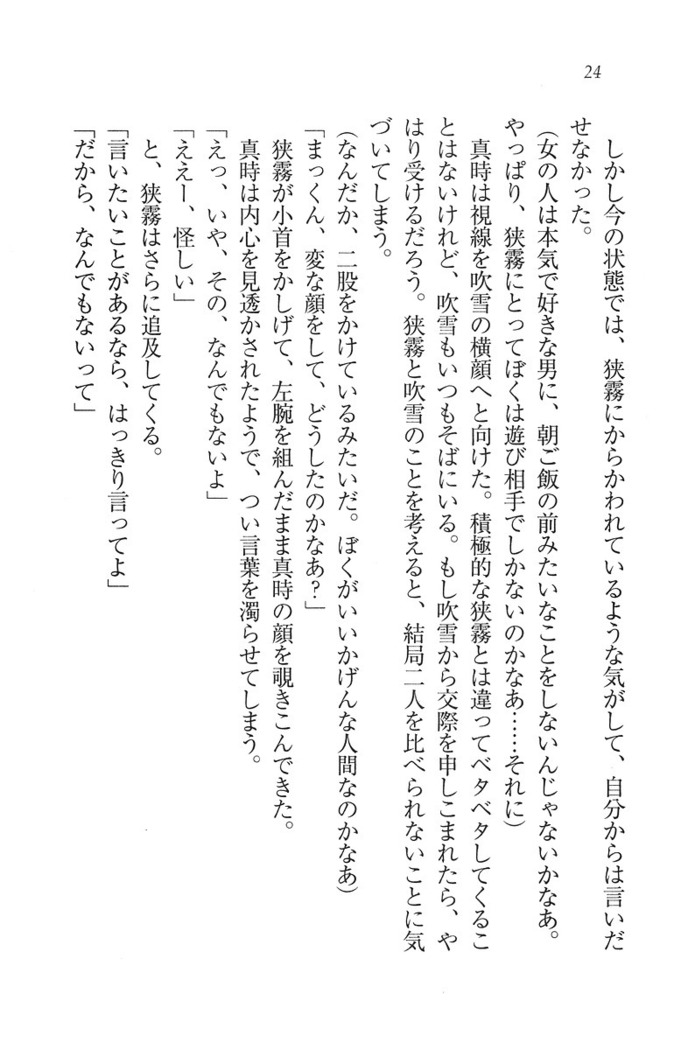 24
しかし今の状態では、狭霧にからかわれているような気がして、自分からは言いだ
せなかった。
(女の人は本気で好きな男に、朝ご飯の前みたいなことをしないんじゃないかなあ。
やっぱり、狭霧にとってぼくは遊び相手でしかないのかなあ……それに)
真時は視線を吹雪の横顔へと向けた。積極的な狭霧とは違ってベタベタしてくるこ
とはないけれど、吹雪もいつもそばにいる。もし吹雪から交際を申しこまれたら、や
はり受けるだろう。狭霧と吹雪のことを考えると、結局二人を比べられないことに気
づいてしまう。
(なんだか、二股をかけているみたいだ。ぼくがいいかげんな人間なのかなあ)
「まっくん、変な顔をして、どうしたのかなあ?」
狭霧が小首をかしげて、左腕を組んだまま真時の顔を覗きこんできた。
真時は内心を見透かされたようで、つい言葉を濁らせてしまう。
「えっ、いや、その、なんでもないよ」
「ええー、怪しい」
と、狭霧はさらに追及してくる。
「言いたいことがあるなら、はっきり言ってよ」
「だから、なんでもないって」